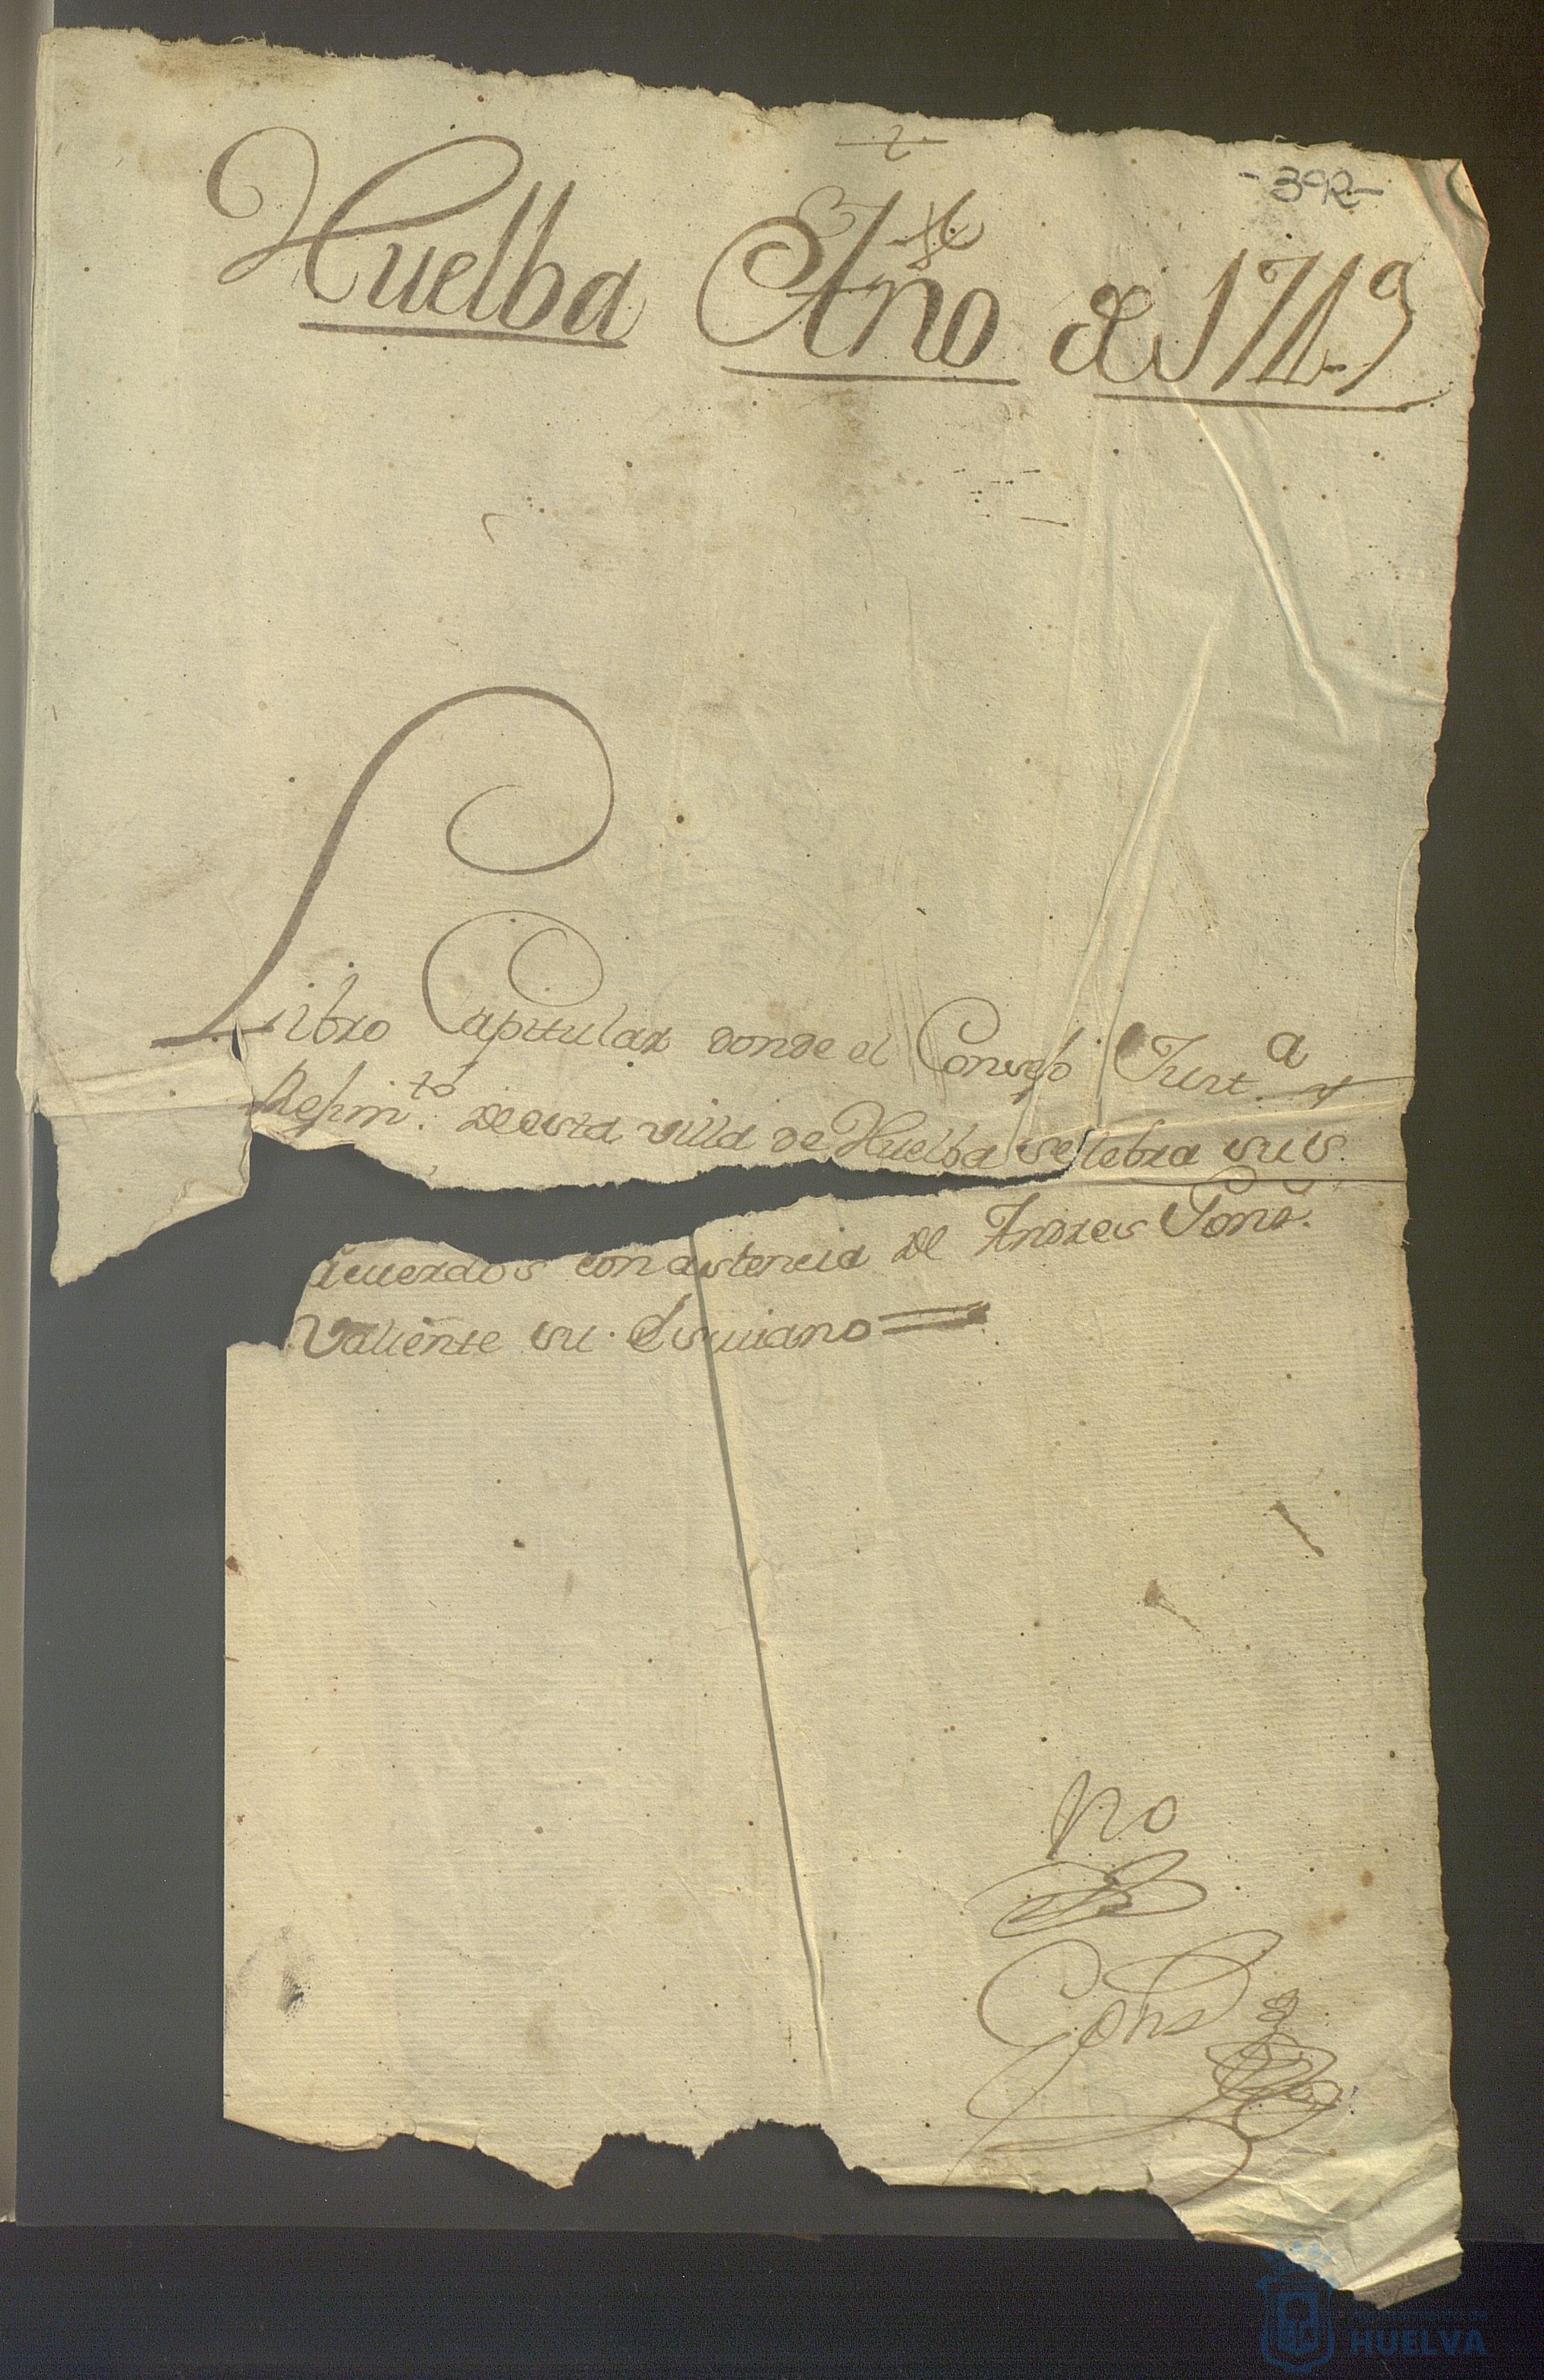 -39R-
Huelba Año de 1719
Libro Capitular donde el Consejo Just.ª y
Regim.to de esta villa de Huelba selebra sus
acuerdos con asistencia de Andres Gons.
Valiente su Escriuano
No
Gons
AYUNTAMIENTO DE
HUELVA